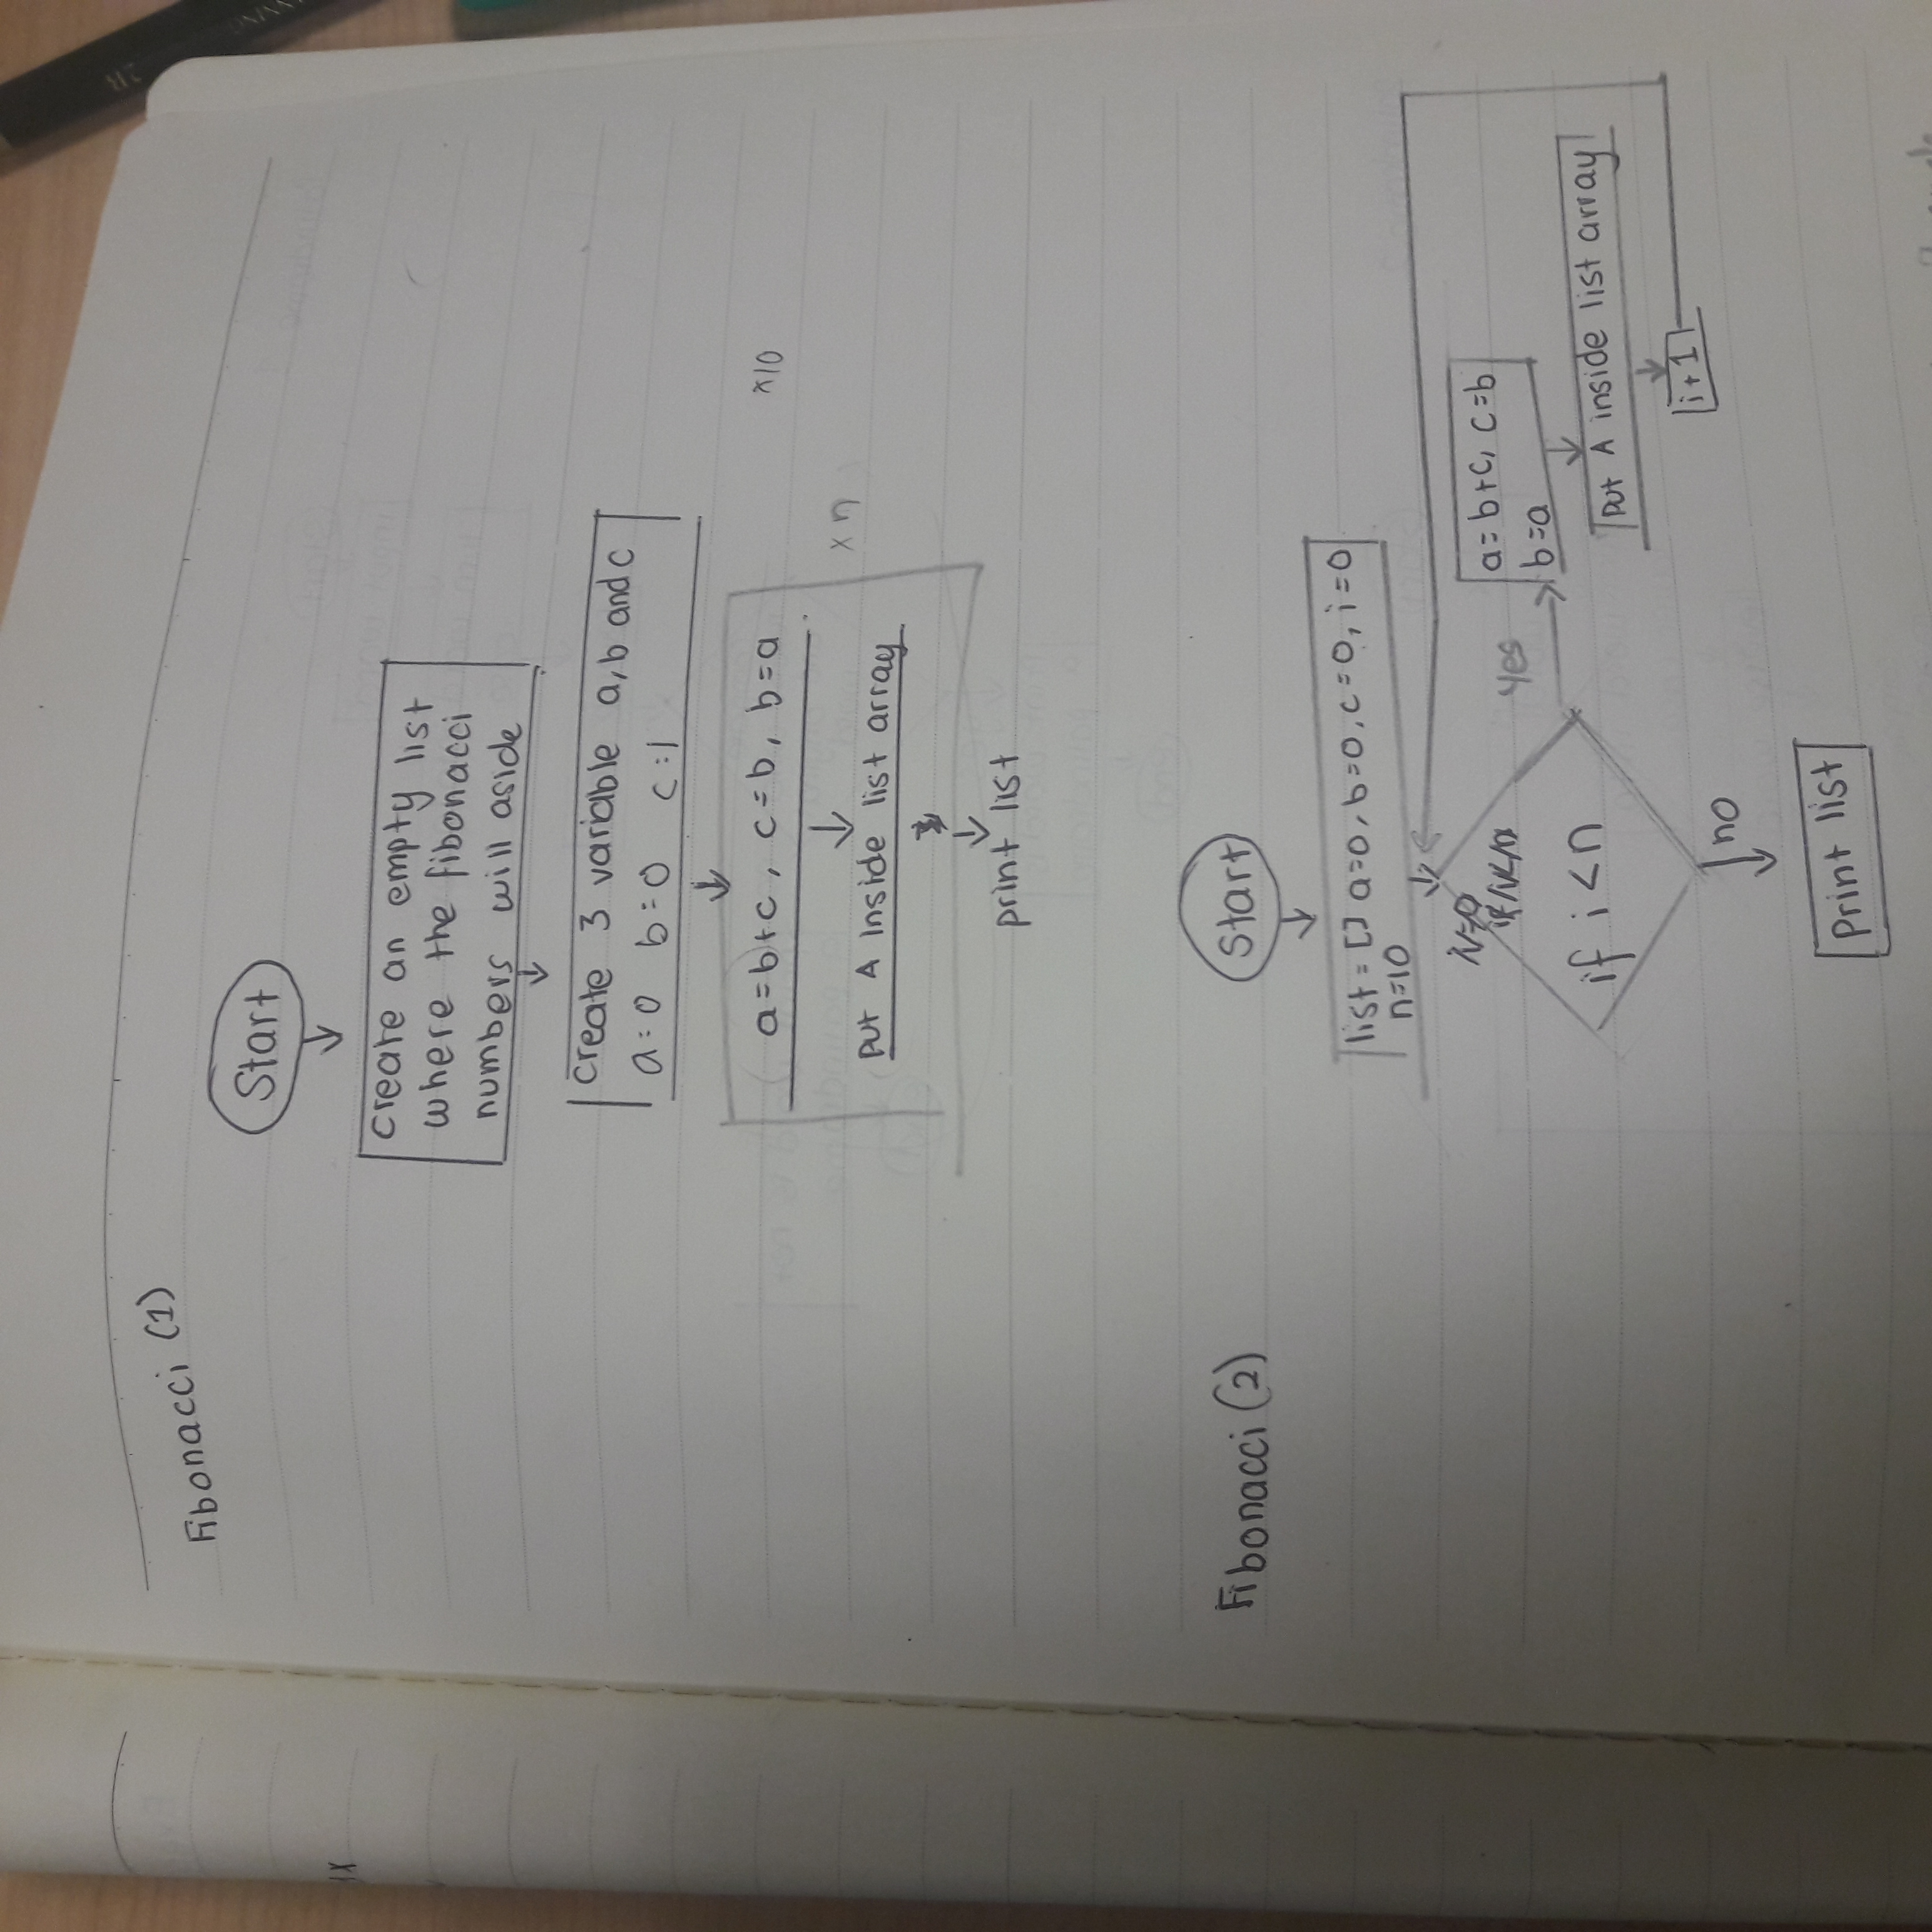 Fibonacci (1)
Start
Create an empty list
where the fibonacci
numbers will aside
Create 3 variable a, b and c
a=0 b=0 c=1
a=b+c, c=b, b=a
x10
Put A inside list array
x n
print list
Fibonacci (2)
Start
list = [] a=0, b=0, c=0, i=0
n=10
if i<n
Yes
a=b+c, c=b
b=a
Put A inside list array
i+1
no
print list